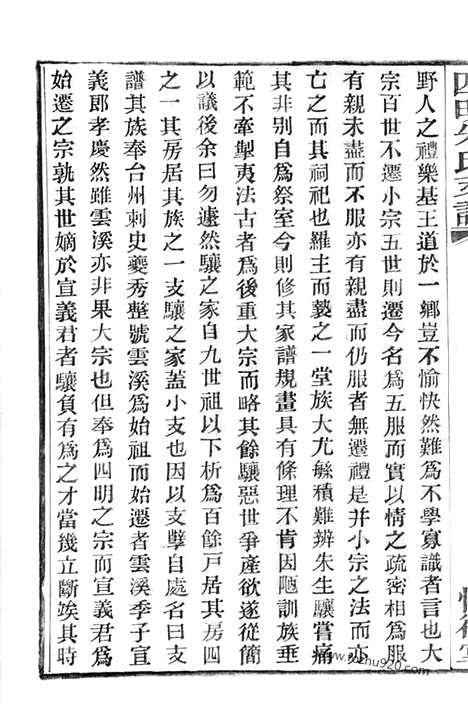 野人之禮樂基王道於一鄉豈不愉快然難為不學寡識者言也大
宗百世不遷小宗五世則遷今名為五服而實以情之疏密相為服
有親未盡而不服亦有親盡而仍服者無遷禮是并小宗之法而亦
亡之而其祠祀也羅主而褻之一堂族大尤緜積難辨朱生驤嘗痛
其非別自為祭室今則修其家譜規畫具有條理不肯因陋訓族垂
範不牽掣夷法古者為後重大宗而略其餘驤惡世爭產欲遂從簡
以議後余曰勿遽然驤之家自九世祖以下析為百餘戶居其房四
之一其房居其族之一支驤之家蓋小支也因以支擘自處名曰支
譜其族奉台州刺史夔秀整號雲溪為始祖而始遷者雲溪季子宣
義郎孝慶然雖雲溪亦非果大宗也但奉為四明之宗而宣義君為
始遷之宗孰其世嫡於宣義君者驤負有為之才當幾立斷竢其時
www.shu920.com